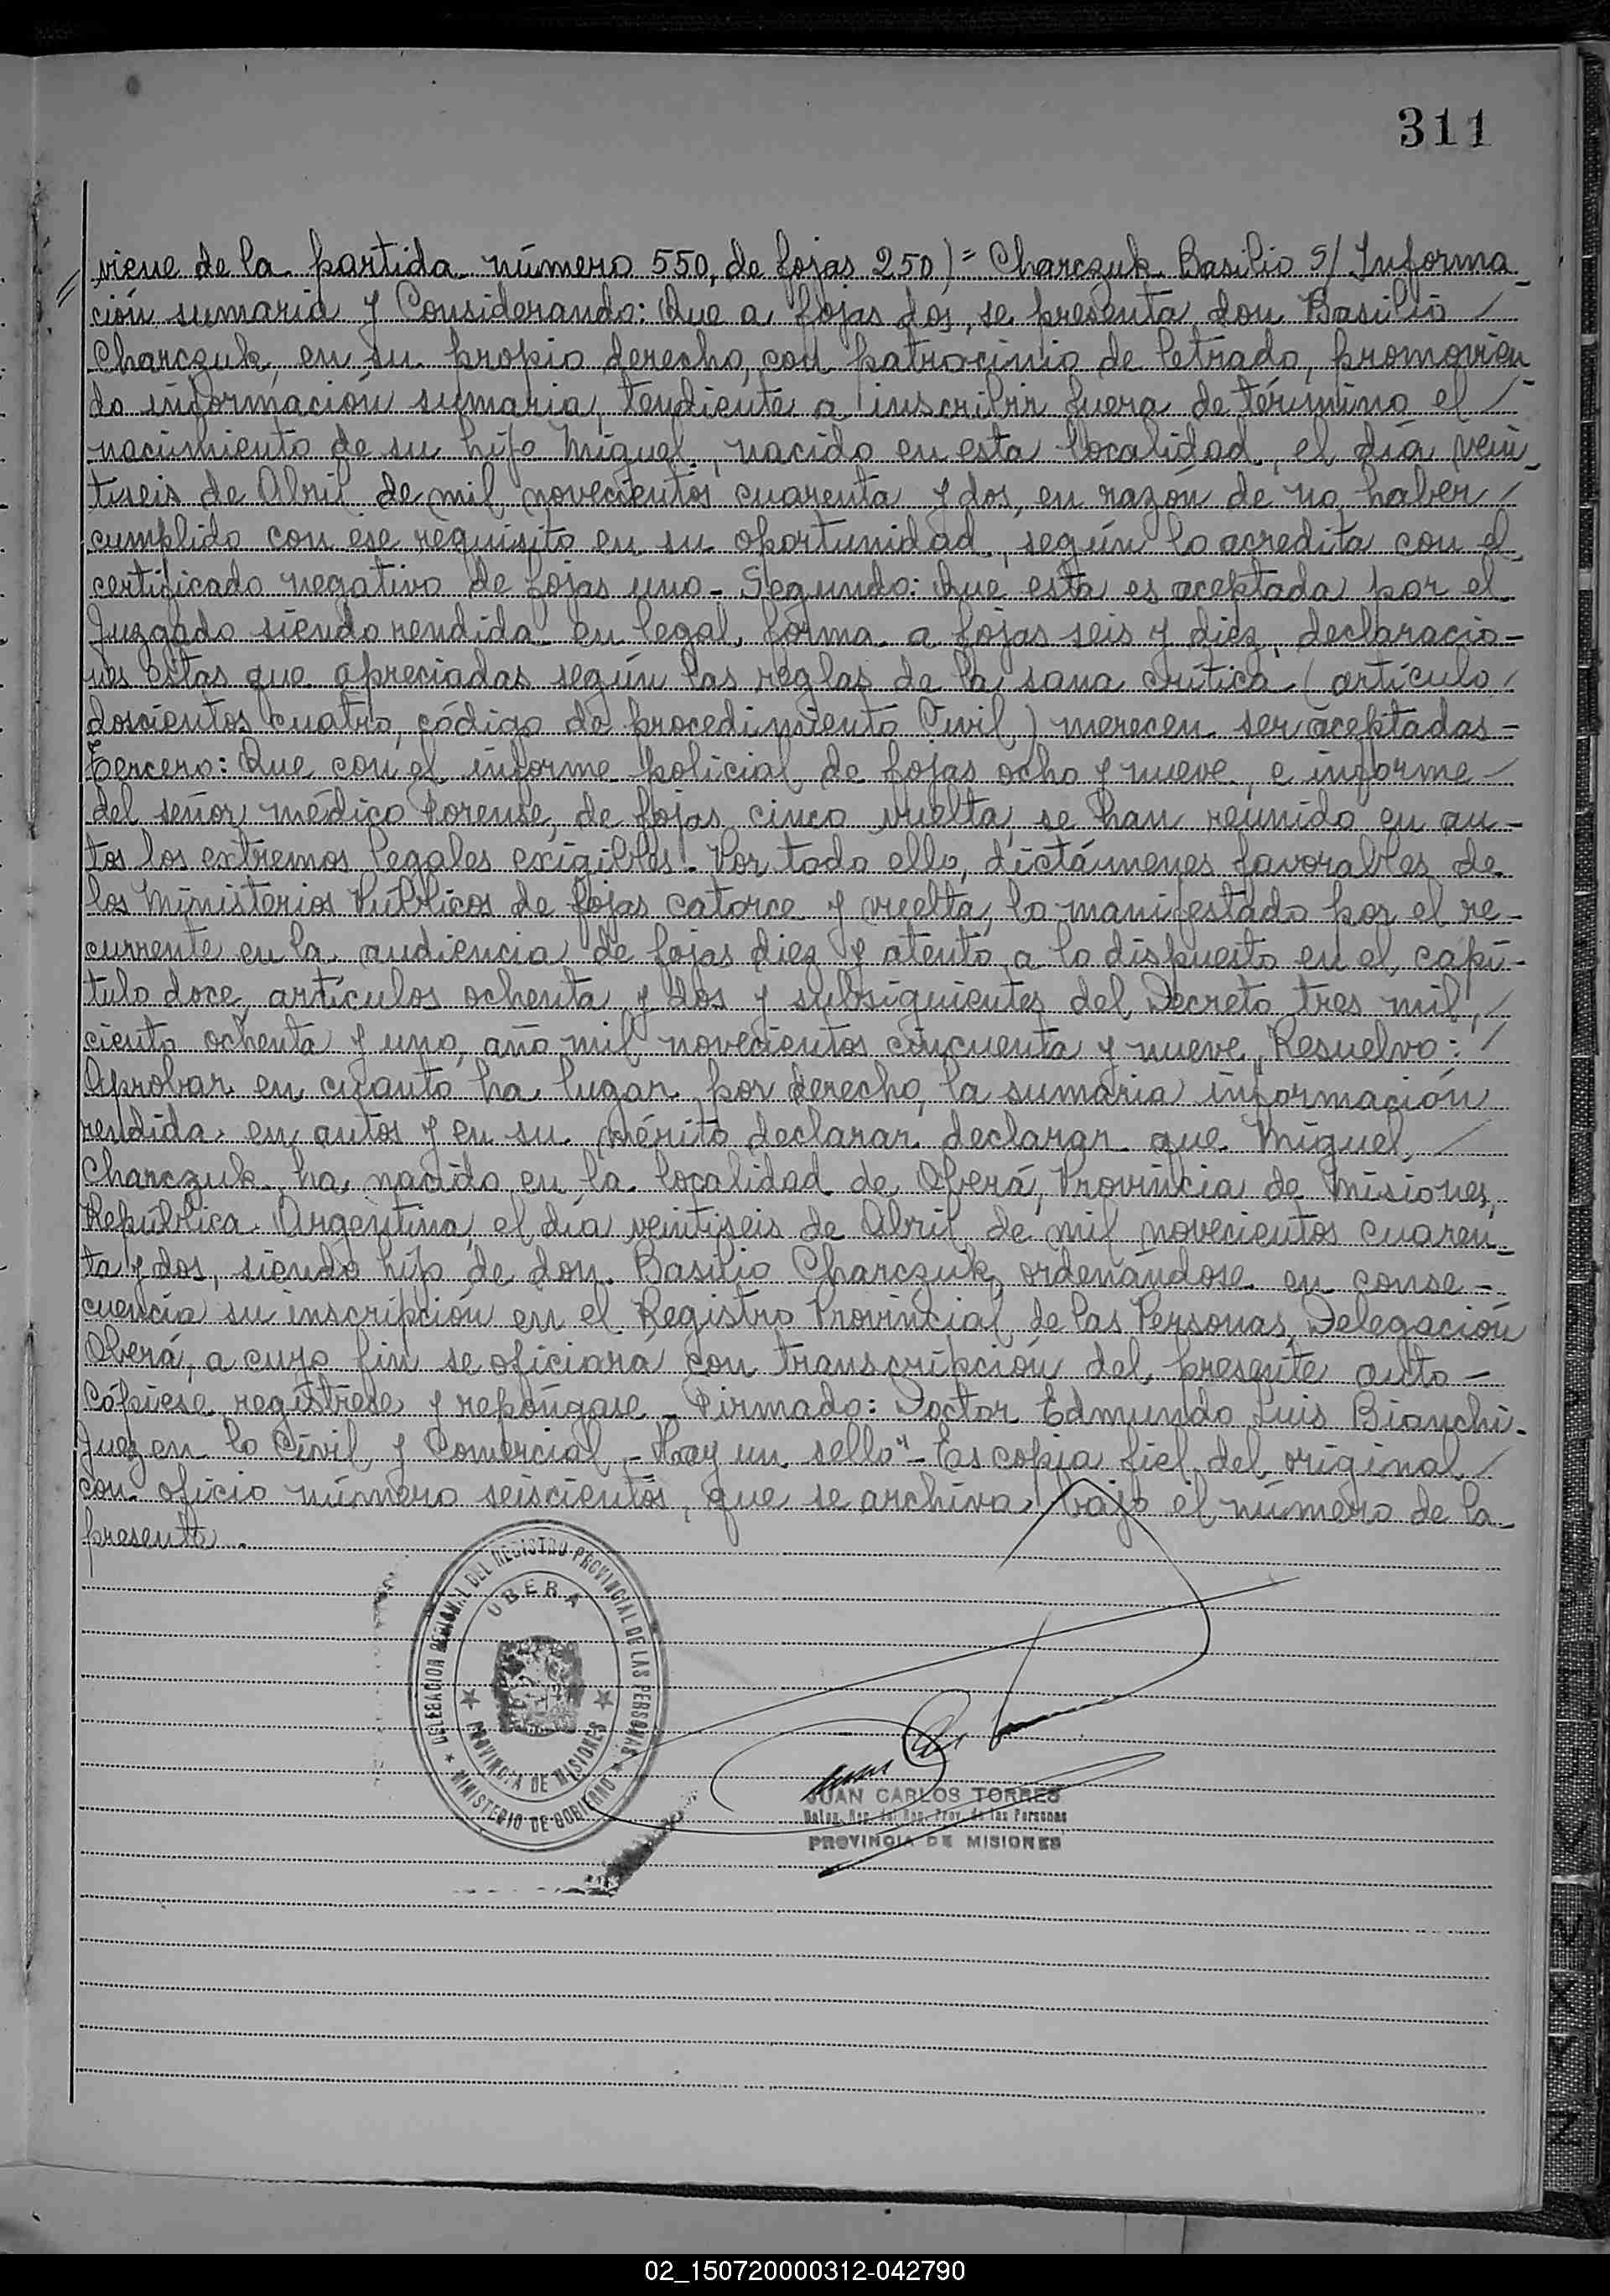 311
viene de la partida número 550, de fojas 250) = Charczuk Basilio s/ Informa-
ción sumaria y Considerando: Que a fojas dos, se presenta don Basilio /
Charczuk, en su propio derecho, con patrocinio de letrado, promovien-
do información sumaria, tendiente a inscribir fuera de término el /
nacimiento de su hijo Miguel, nacido en esta localidad, el día vein-
tiseis de Abril de mil novecientos cuarenta y dos, en razón de no haber /
cumplido con ese requisito en su oportunidad, según lo acredita con el
certificado negativo de fojas uno - Segundo: Que esta es aceptada por el
Juzgado siendo rendida en legal forma a fojas seis y diez, declaracio-
nes estas que apreciadas según las reglas de la sana crítica (artículo /
doscientos cuatro, código de procedimiento Civil) merecen ser aceptadas -
Tercero: Que con el informe policial de fojas ocho y nueve, e informe -
del señor médico Forense, de fojas cinco vuelta, se han reunido en au-
tos los extremos legales exigibles - Por todo ello, dictámenes favorables de
los Ministerios Públicos de fojas catorce y vuelta, lo manifestado por el re-
currente en la audiencia de fojas diez y atento a lo dispuesto en el capí-
tulo doce, artículos ochenta y dos y subsiguientes del Decreto tres mil, /
ciento ochenta y uno, año mil novecientos cincuenta y nueve, Resuelvo: /
Aprobar en cuanto ha lugar por derecho, la sumaria información
rendida en autos y en su mérito declarar declarar que Miguel, /
Charczuk ha nacido en la localidad de Oberá, Provincia de Misiones,
República Argentina, el día veintiseis de Abril de mil novecientos cuaren-
ta y dos, siendo hijo de don Basilio Charczuk, ordenándose en conse-
cuencia su inscripción en el Registro Provincial de las Personas, Delegación
Oberá, a cuyo fin se oficiara con transcripción del presente auto -
Cópiese, regístrese y repóngase - Firmado: Doctor Edmundo Luis Bianchi -
Juez en lo Civil y Comercial - Hay un sello" - Es copia fiel del original /
con oficio número seiscientos, que se archiva bajo el número de la
presente.
DELEGACION REGIONAL DEL REGISTRO PROVINCIAL DE LAS PERSONAS
OBERÁ
PROVINCIA DE MISIONES
MINISTERIO DE GOBIERNO
JUAN CARLOS TORRES
Deleg. Reg. del Reg. Prov. de las Personas
PROVINCIA DE MISIONES
02_150720000312-042790